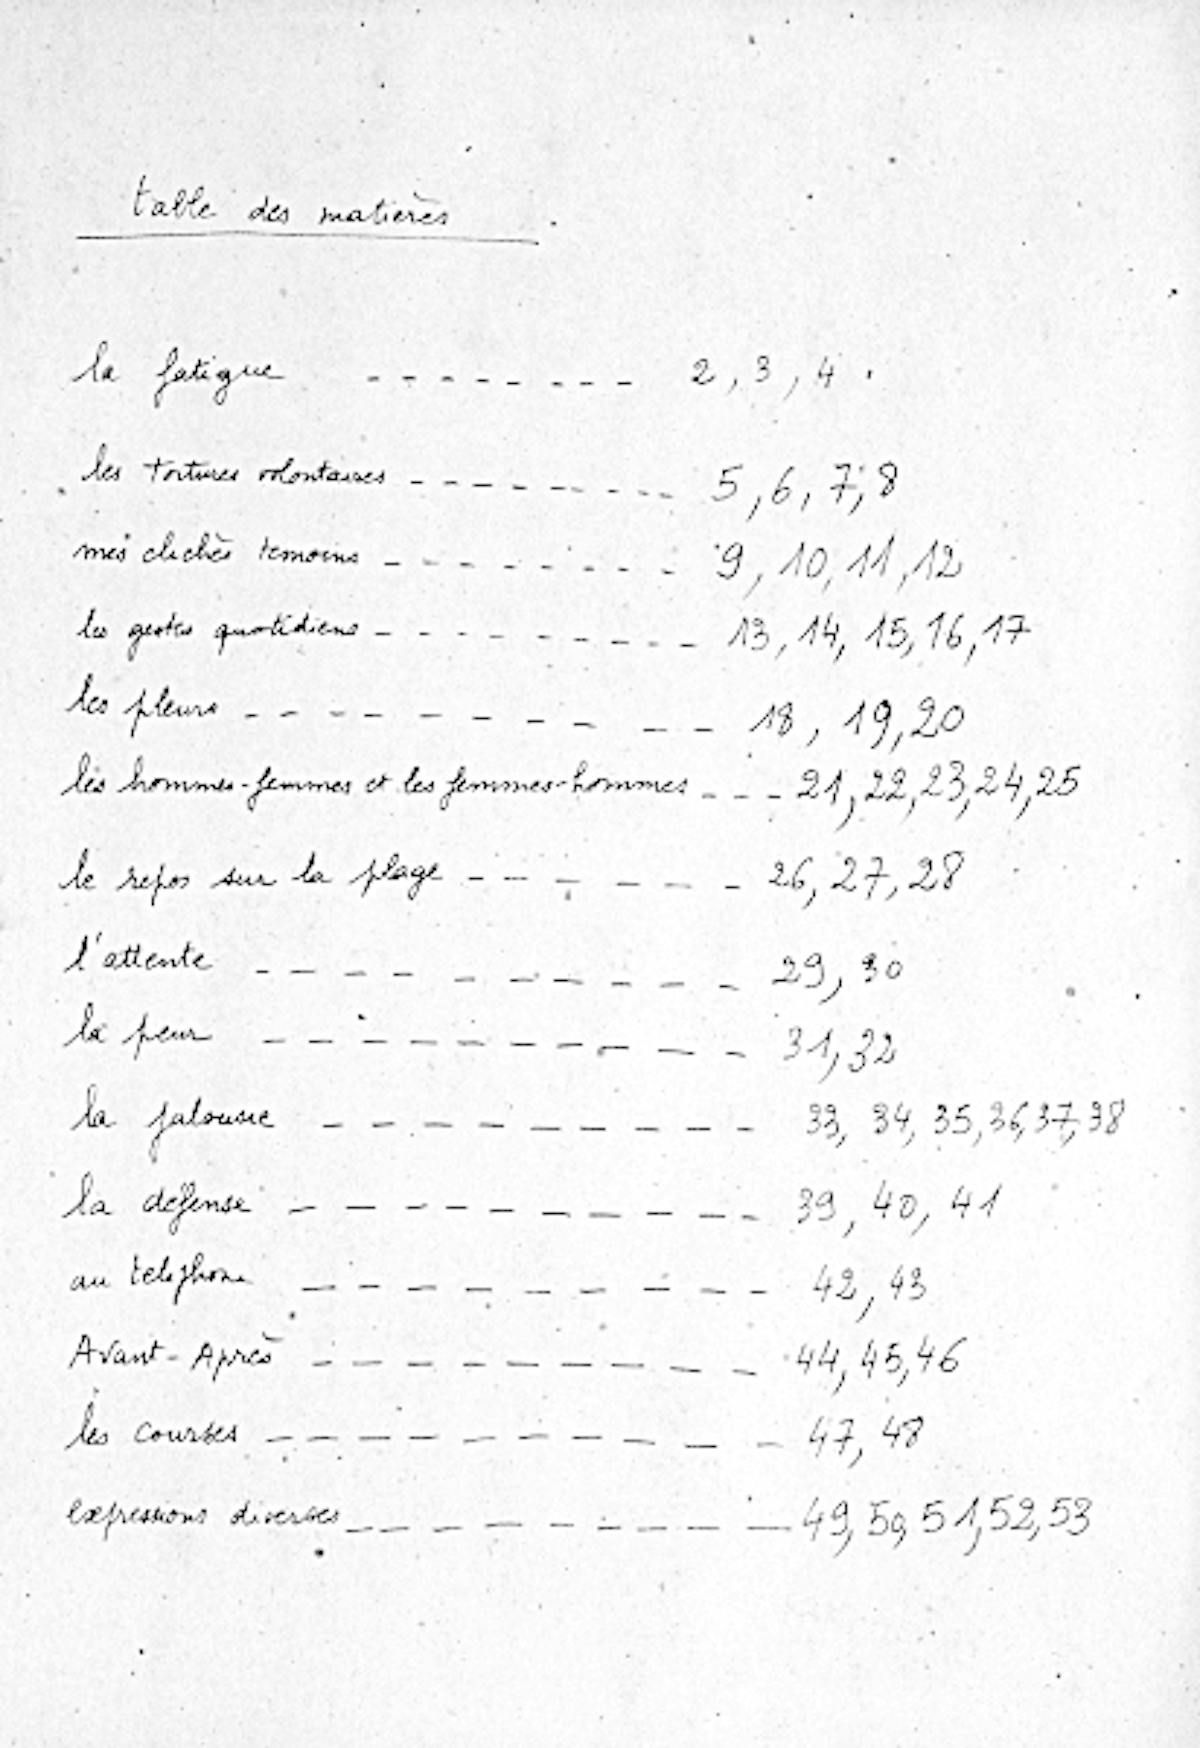 table des matières
la fatigue - - - - - - - - - 2, 3, 4.
les tortures volontaires - - - - - - - - - 5, 6, 7, 8
mes clichés temoins - - - - - - - - - 9, 10, 11, 12
les gestes quotidiens - - - - - - - - - 13, 14, 15, 16, 17
les pleurs - - - - - - - - - - - 18, 19, 20
les hommes-femmes et les femmes-hommes - - - 21, 22, 23, 24, 25
le repos sur la plage - - - - - - - 26, 27, 28
l'attente - - - - - - - - - - - 29, 30
la peur - - - - - - - - - - - 31, 32
la jalousie - - - - - - - - - - 33, 34, 35, 36, 37, 38
la défense - - - - - - - - - - - 39, 40, 41
au telephone - - - - - - - - - - 42, 43
Avant - Après - - - - - - - - - - 44, 45, 46
les courses - - - - - - - - - - - 47, 48
expressions diverses - - - - - - - - - - 49, 50, 51, 52, 53